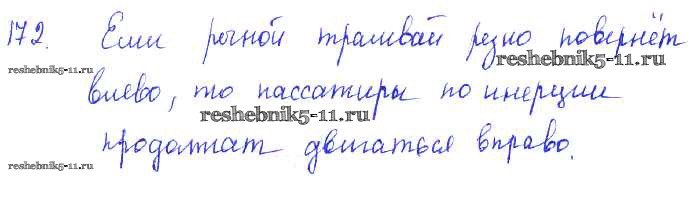 172. Если речной трамвай резко повернёт
reshebnik5-11.ru reshebnik5-11.ru
влево, то пассажиры по инерции
reshebnik5-11.ru
продолжат двигаться вправо.
reshebnik5-11.ru